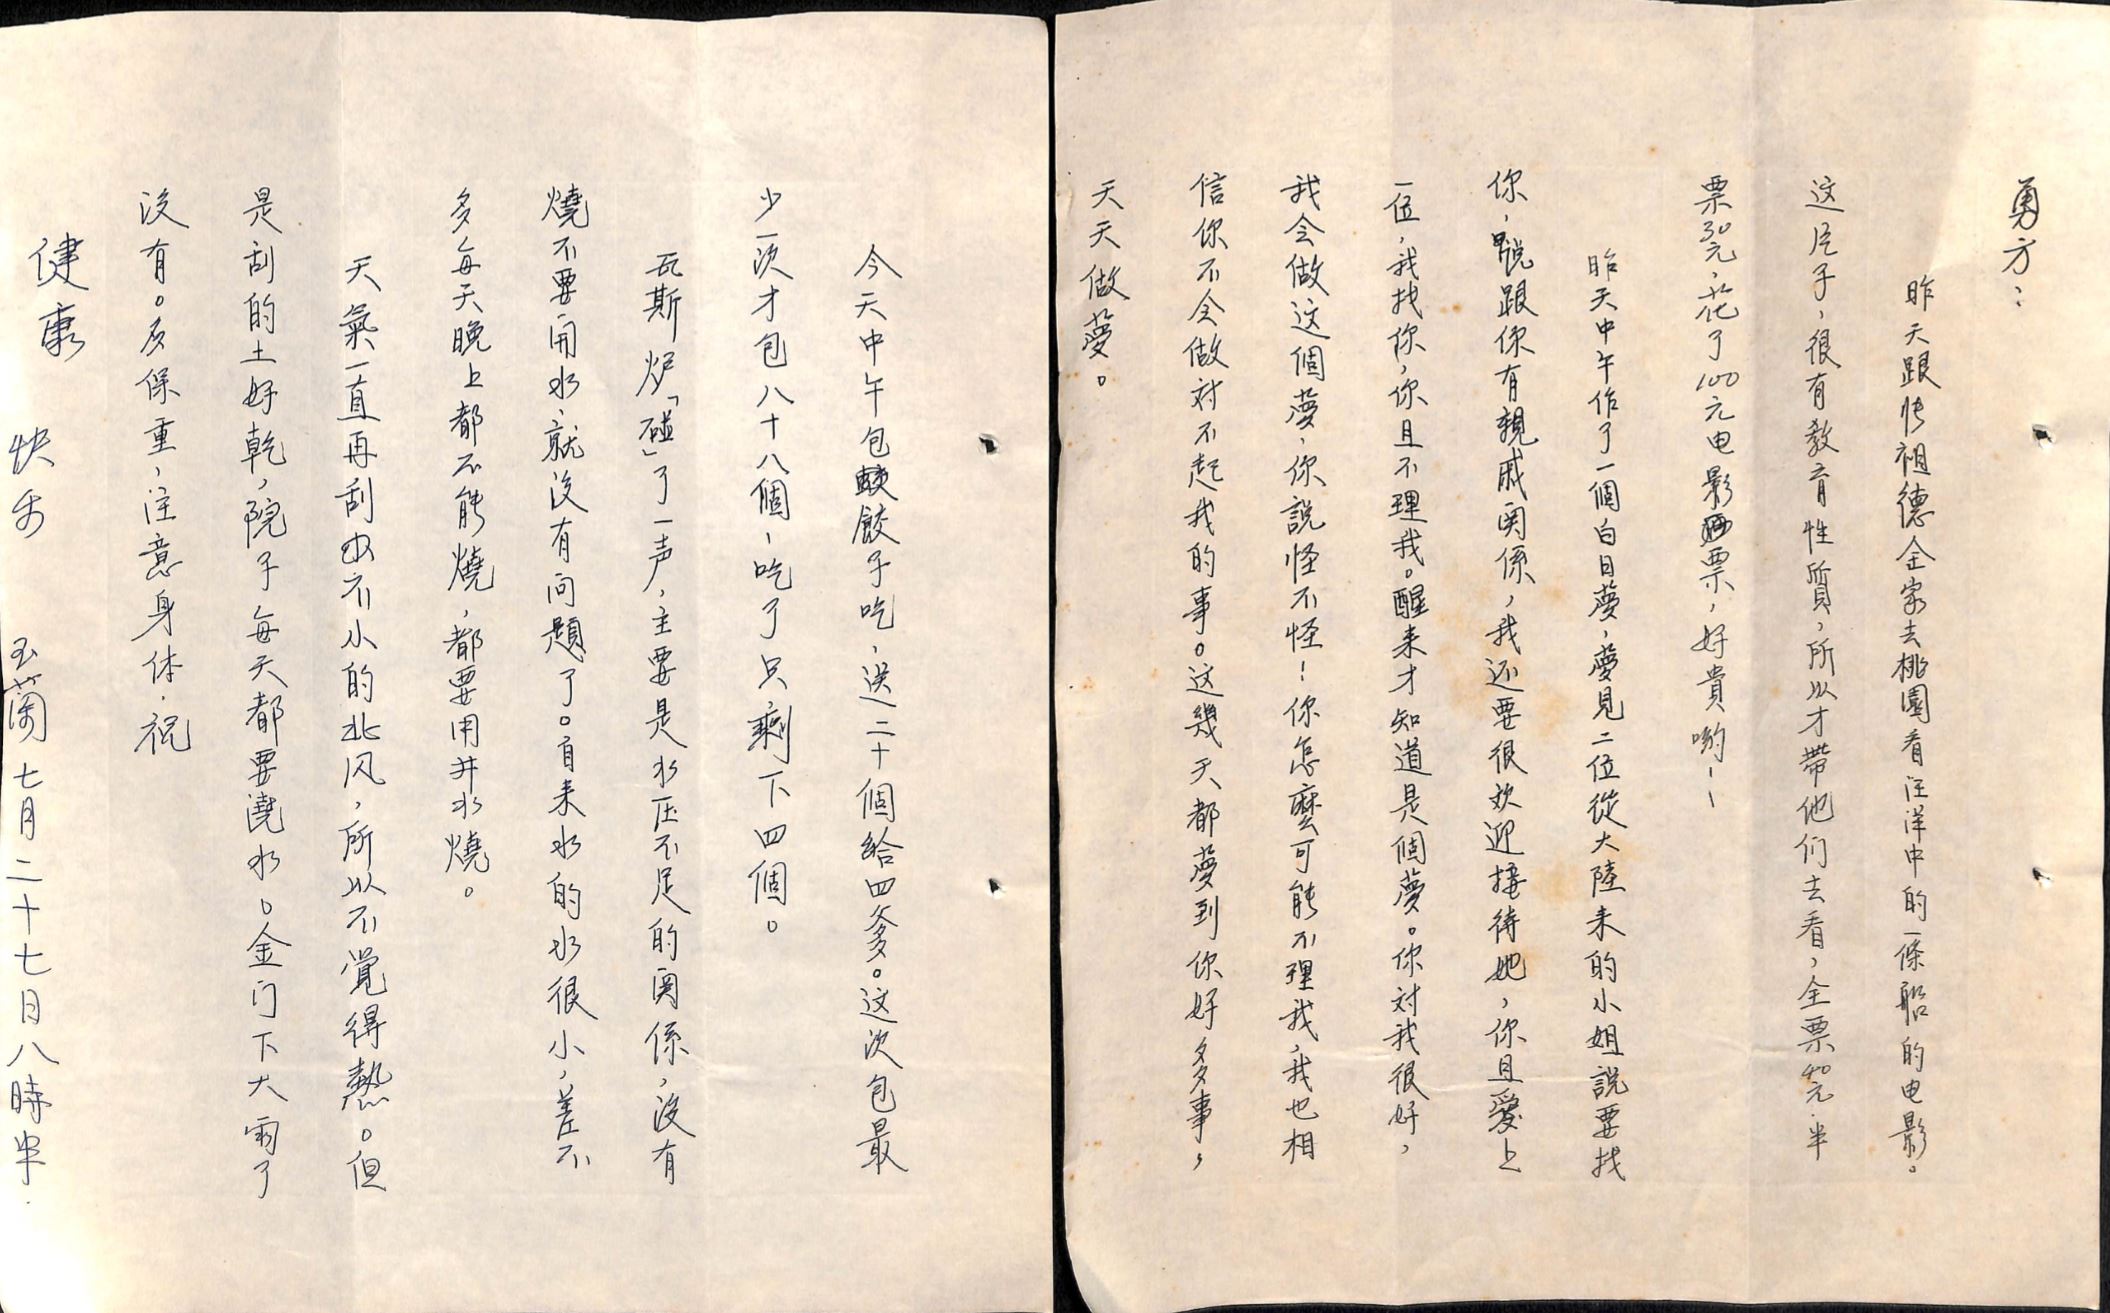 勇方：
昨天跟悌祖德全家去桃園看汪洋中的一條船的电影。
这片子，很有教育性質，所以才帶他们去看，全票40元．半
票30元，花了100元电影票，好貴喲！！
昨天中午作了一個白日夢，夢見二位從大陸来的小姐說要找
你，說跟你有親戚関係，我还要很欢迎接待她，你且愛上
一位，我找你，你且不理我。醒来才知道是個夢。你対我很好，
我会做这個夢，你說怪不怪！你怎麼可能不理我，我也相
信你不会做対不起我的事。这幾天都夢到你好多事，
天天做夢。
今天中午包餃子吃，送二十個給四爹。这次包最
少一次才包八十八個，吃了只剩下四個。
瓦斯炉「碰」了一声，主要是水压不足的関係，没有
燒不要開水，就没有问題了。自来水的水很小，差不
多每天晚上都不能燒，都要用井水燒。
天氣一直再刮不小的北风，所以不覺得熱。但
是刮的土好乾，院子每天都要澆水。金门下大雨了
没有。多保重，注意身体．祝
健康
快乐
玉蘭 七月二十七日八時半．